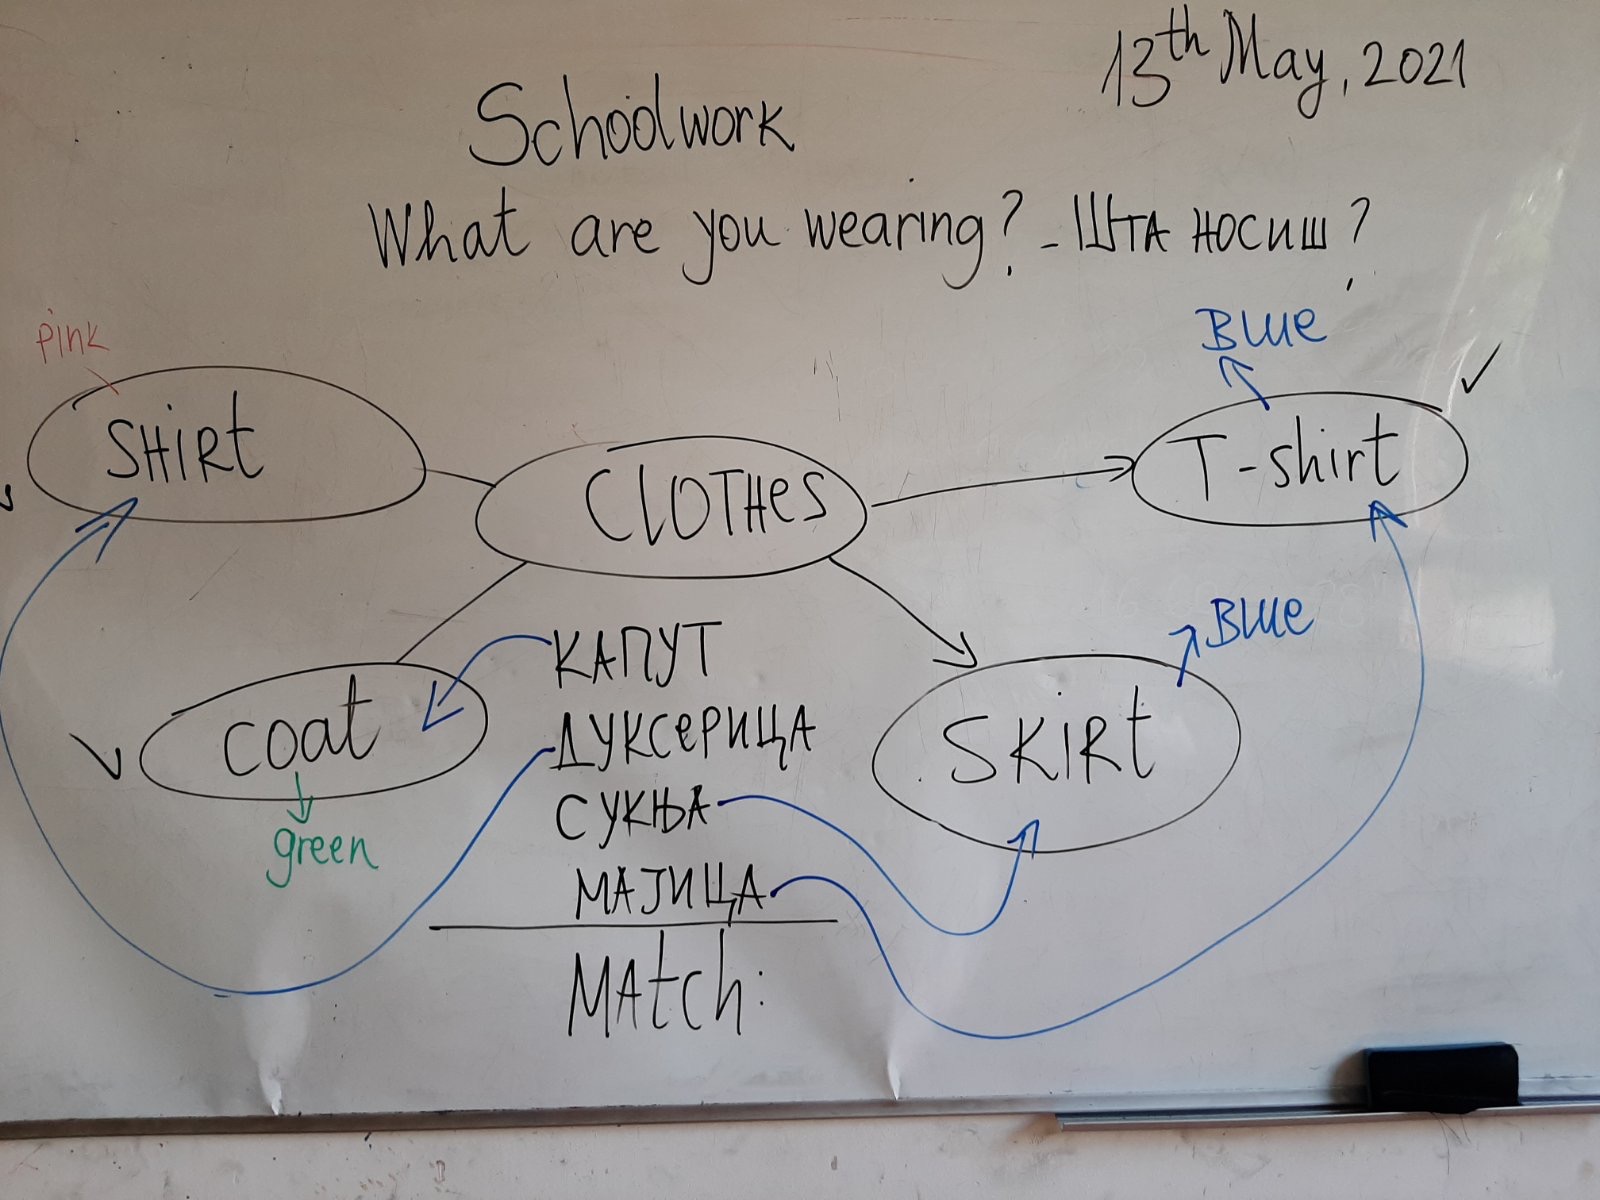 13th May, 2021
Schoolwork
What are you wearing? - ШТА НОСИШ?
pink
SHIRt
CLOTHeS
Blue
T-shirt
coat
green
КАПУТ
ДУКСеРИЦА
СУКЊА
МАЈИЦА
Blue
SKIRt
MAtch: